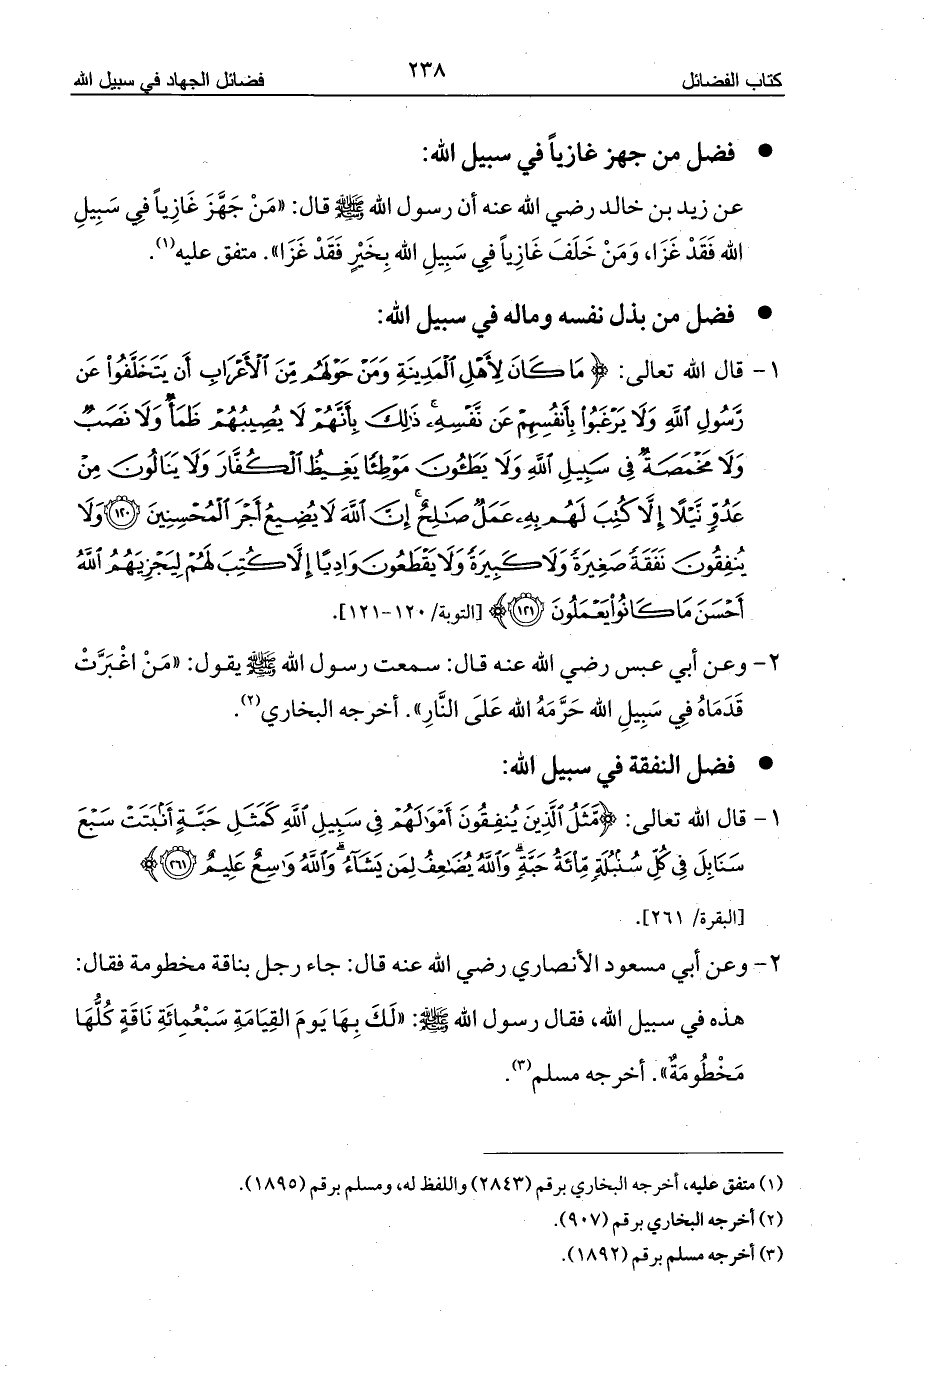 كتاب الفضائل ٢٣٨ فضائل الجهاد في سبيل الله
● فضل من جهز غازياً في سبيل الله:
عن زيد بن خالد رضي الله عنه أن رسول الله ﷺ قال: «مَنْ جَهَّزَ غَازِياً فِي سَبِيلِ
الله فَقَدْ غَزَا، وَمَنْ خَلَفَ غَازِياً فِي سَبِيلِ الله بِخَيْرٍ فَقَدْ غَزَا». متفق عليه(١).
● فضل من بذل نفسه وماله في سبيل الله:
١- قال الله تعالى: ﴿مَا كَانَ لِأَهْلِ ٱلْمَدِينَةِ وَمَنْ حَوْلَهُم مِّنَ ٱلْأَعْرَابِ أَن يَتَخَلَّفُوا۟ عَن
رَّسُولِ ٱللَّهِ وَلَا يَرْغَبُوا۟ بِأَنفُسِهِمْ عَن نَّفْسِهِۦ ۚ ذَٰلِكَ بِأَنَّهُمْ لَا يُصِيبُهُمْ ظَمَأٌ وَلَا نَصَبٌ
وَلَا مَخْمَصَةٌ فِى سَبِيلِ ٱللَّهِ وَلَا يَطَـُٔونَ مَوْطِئًا يَغِيظُ ٱلْكُفَّارَ وَلَا يَنَالُونَ مِنْ
عَدُوٍّ نَّيْلًا إِلَّا كُتِبَ لَهُم بِهِۦ عَمَلٌ صَـٰلِحٌ ۚ إِنَّ ٱللَّهَ لَا يُضِيعُ أَجْرَ ٱلْمُحْسِنِينَ ١٢٠ وَلَا
يُنفِقُونَ نَفَقَةً صَغِيرَةً وَلَا كَبِيرَةً وَلَا يَقْطَعُونَ وَادِيًا إِلَّا كُتِبَ لَهُمْ لِيَجْزِيَهُمُ ٱللَّهُ
أَحْسَنَ مَا كَانُوا۟ يَعْمَلُونَ ١٢١﴾ [التوبة/ ١٢٠-١٢١].
٢- وعن أبي عبس رضي الله عنه قال: سمعت رسول الله ﷺ يقول: «مَنْ اغْبَرَّتْ
قَدَمَاهُ فِي سَبِيلِ الله حَرَّمَهُ الله عَلَى النَّارِ». أخرجه البخاري(٢).
● فضل النفقة في سبيل الله:
١- قال الله تعالى: ﴿مَّثَلُ ٱلَّذِينَ يُنفِقُونَ أَمْوَٰلَهُمْ فِى سَبِيلِ ٱللَّهِ كَمَثَلِ حَبَّةٍ أَنۢبَتَتْ سَبْعَ
سَنَابِلَ فِى كُلِّ سُنۢبُلَةٍ مِّا۟ئَةُ حَبَّةٍ ۗ وَٱللَّهُ يُضَـٰعِفُ لِمَن يَشَآءُ ۗ وَٱللَّهُ وَٰسِعٌ عَلِيمٌ ٢٦١﴾
[البقرة/ ٢٦١].
٢- وعن أبي مسعود الأنصاري رضي الله عنه قال: جاء رجل بناقة مخطومة فقال:
هذه في سبيل الله، فقال رسول الله ﷺ: «لَكَ بِهَا يَومَ القِيَامَةِ سَبْعُمِائَةِ نَاقَةٍ كُلُّهَا
مَخْطُومَةٌ». أخرجه مسلم(٣).
(١) متفق عليه، أخرجه البخاري برقم (٢٨٤٣) واللفظ له، ومسلم برقم (١٨٩٥).
(٢) أخرجه البخاري برقم (٩٠٧).
(٣) أخرجه مسلم برقم (١٨٩٢).